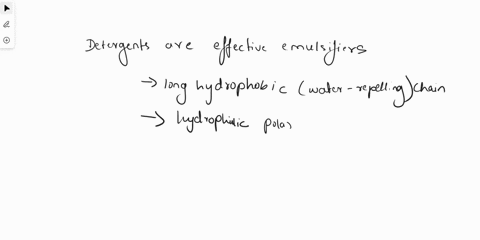 Detergents are effective emulsifiers
→ long hydrophobic (water-repelling) chain
→ hydrophilic polar